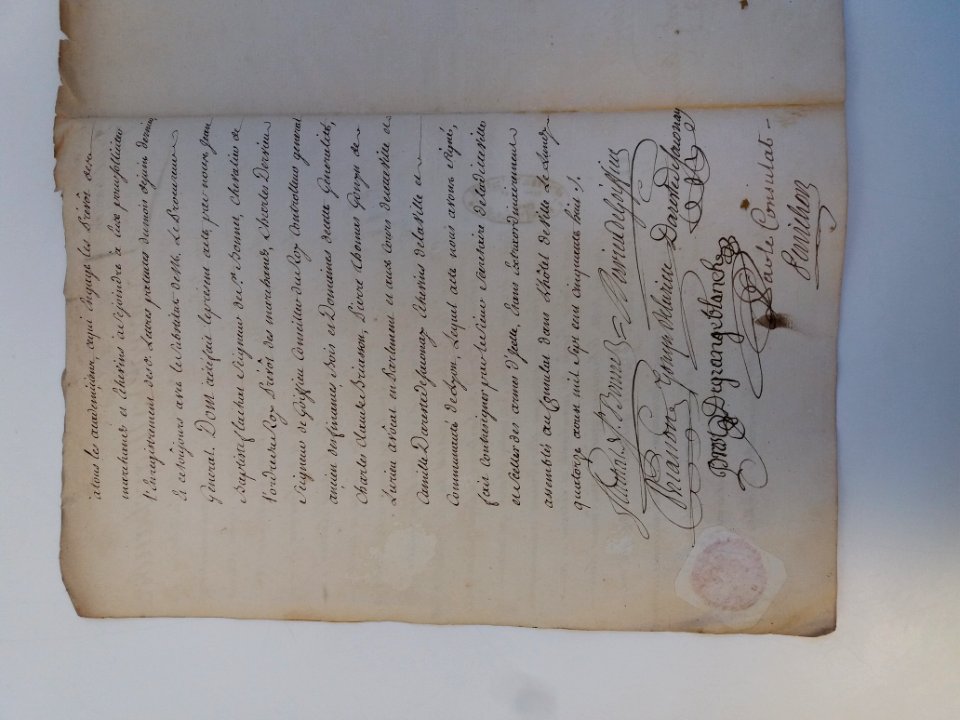 atous les academiciens, cequi engage les Prévôt des
marchands et Echevins asejoindre à Eux pour solliciter
l'enregistrement des d. Lettres patentes du mois de juin dernier,
Et ce toujours avis le substitut de M. Le Procureur
General. Dont aété fait le present acte par nous Jean
Baptiste flachat Seigneur de St. Bonnet, chevalier de
l'ordre du Roy Prévôt des marchands, Charles Dervieu
Seigneur de Goiffieu Conseiller du Roy Controlleur general
ancien des finances Bois et Domaines de cette Generalité,
Charles claude Briasson, Pierre Thomas Gonyn de
Lurieu avocat en Parlement et aux Cours de cette ville et
Camille Dareste de Saconay Echevins de la ville et
Communauté de Lyon, Lequel acte nous avons signé,
fait Contresigner par le sieur secretaire de lad. ville
et sceller des armes d'jcelle, dans extraordinairement
assemblés au Consulat dans l'hôtel de ville Le lundy
quatorze aoust mil sept cent cinquante huit ./.
flachat St Bonnet Dervieu de goiffieu
Briasson Gonyn de lurieu Dareste de Saconay
Brossy Degrangeblanche
Par le Consulat –
Genithon